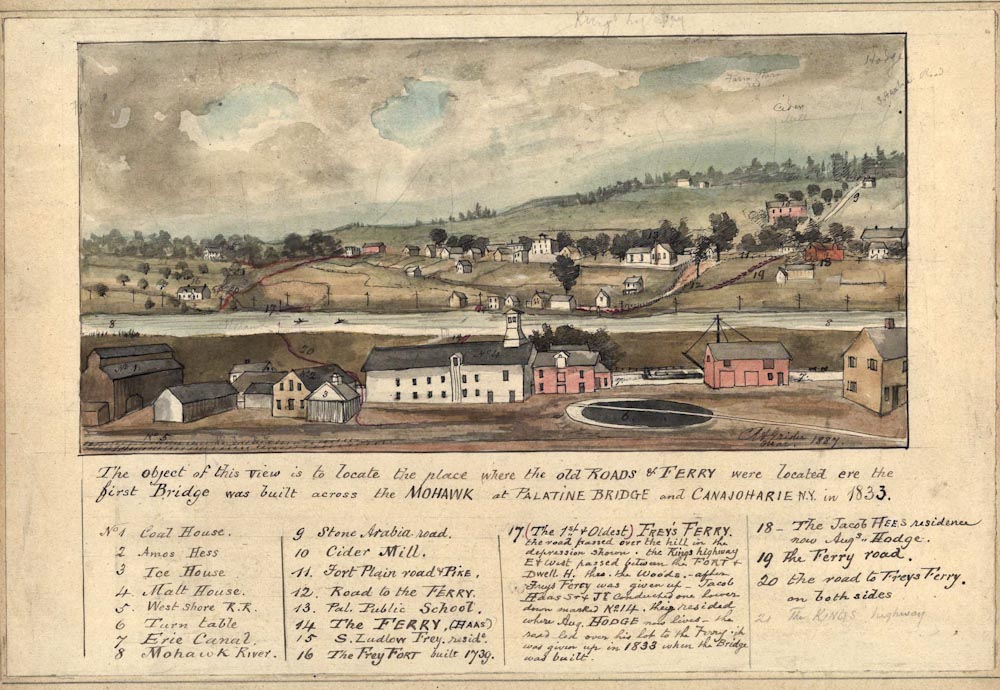 Kings highway
Cider
Mill
No 5
1887.
The object of this view is to locate the place where the old ROADS & FERRY were located ere the
first Bridge was built across the MOHAWK at PALATINE BRIDGE and CANAJOHARIE N.Y. in 1833.
No 1 Coal House.
2 Amos Hess
3 Ice House
4. Malt House.
5. West Shore R.R.
6 Turn table
7 Erie Canal.
8 Mohawk River.
9 Stone Arabia road.
10 Cider Mill.
11. Fort Plain road & PIKE.
12. Road to the FERRY.
13. Pal. Public School.
14 The FERRY, (HAAS)
15 S. Ludlow Frey. resid.
16 The Frey FORT built 1739.
17 (The 1st & Oldest) FREY'S FERRY.
the road passed over the hill in the
depression shown. the Kings highway
E & West passed between the FORT &
Dwell H. thro. the Woods. after
Freys Ferry was given up. Jacob
Haas Sr & Jr Conducted one lower
down marked No 14. they resided
where Aug. HODGE now lives - the
road led over his lot to the Ferry. it
was given up in 1833 when the Bridge
was built.
18 - The Jacob HEES residence
now Aug. Hodge.
19 the Ferry road.
20 the road to Freys Ferry.
on both sides
21 The KINGS highway